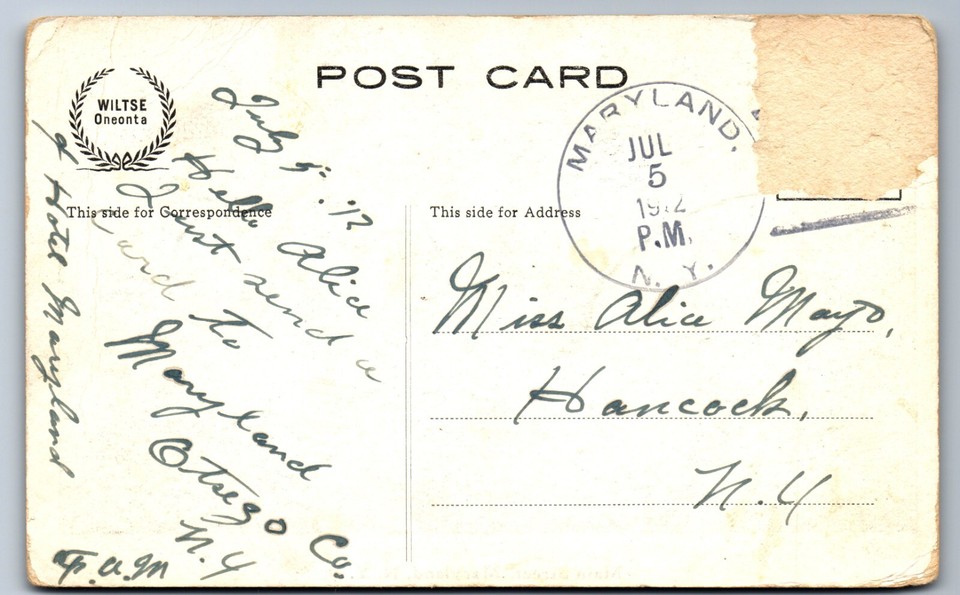 POST CARD
WILTSE
Oneonta
MARYLAND.
JUL
5
1912
P.M.
N. Y.
This side for Correspondence
This side for Address
July 5. '12
Hello Alice
Just send a
card To
Maryland
Otsego Co.
N.Y
% Hotel Maryland
F.A.M
Miss Alice Mayo,
Hancock,
N.Y